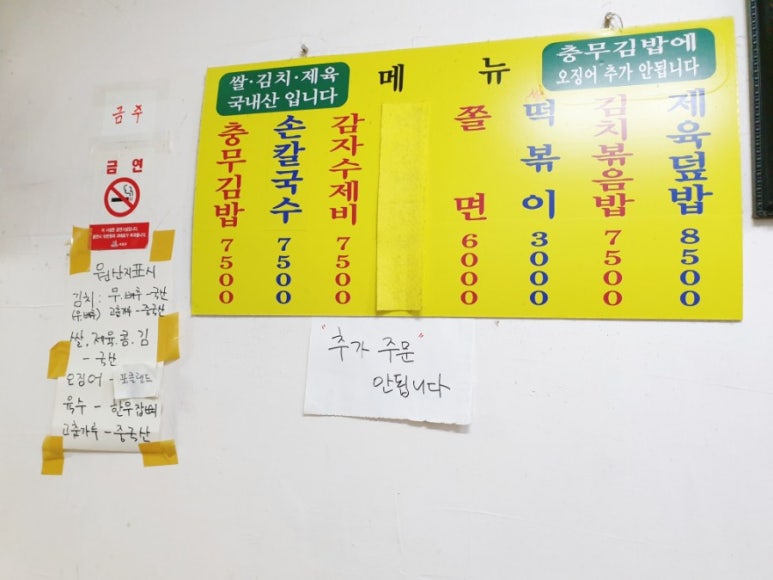 쌀·김치·제육
국내산 입니다
메뉴
충무김밥에
오징어 추가 안됩니다
충무김밥 7500
손칼국수 7500
감자수제비 7500
쫄면 6000
쌀
떡볶이 3000
김치볶음밥 7500
제육덮밥 8500
금주
금연
원산지표시
김치: 무.배추-국산
고춧가루-중국산
쌀.제육.콩.김
-국산
오징어-포클랜드
육수-한우잡뼈
고춧가루-중국산
"추가 주문"
안됩니다